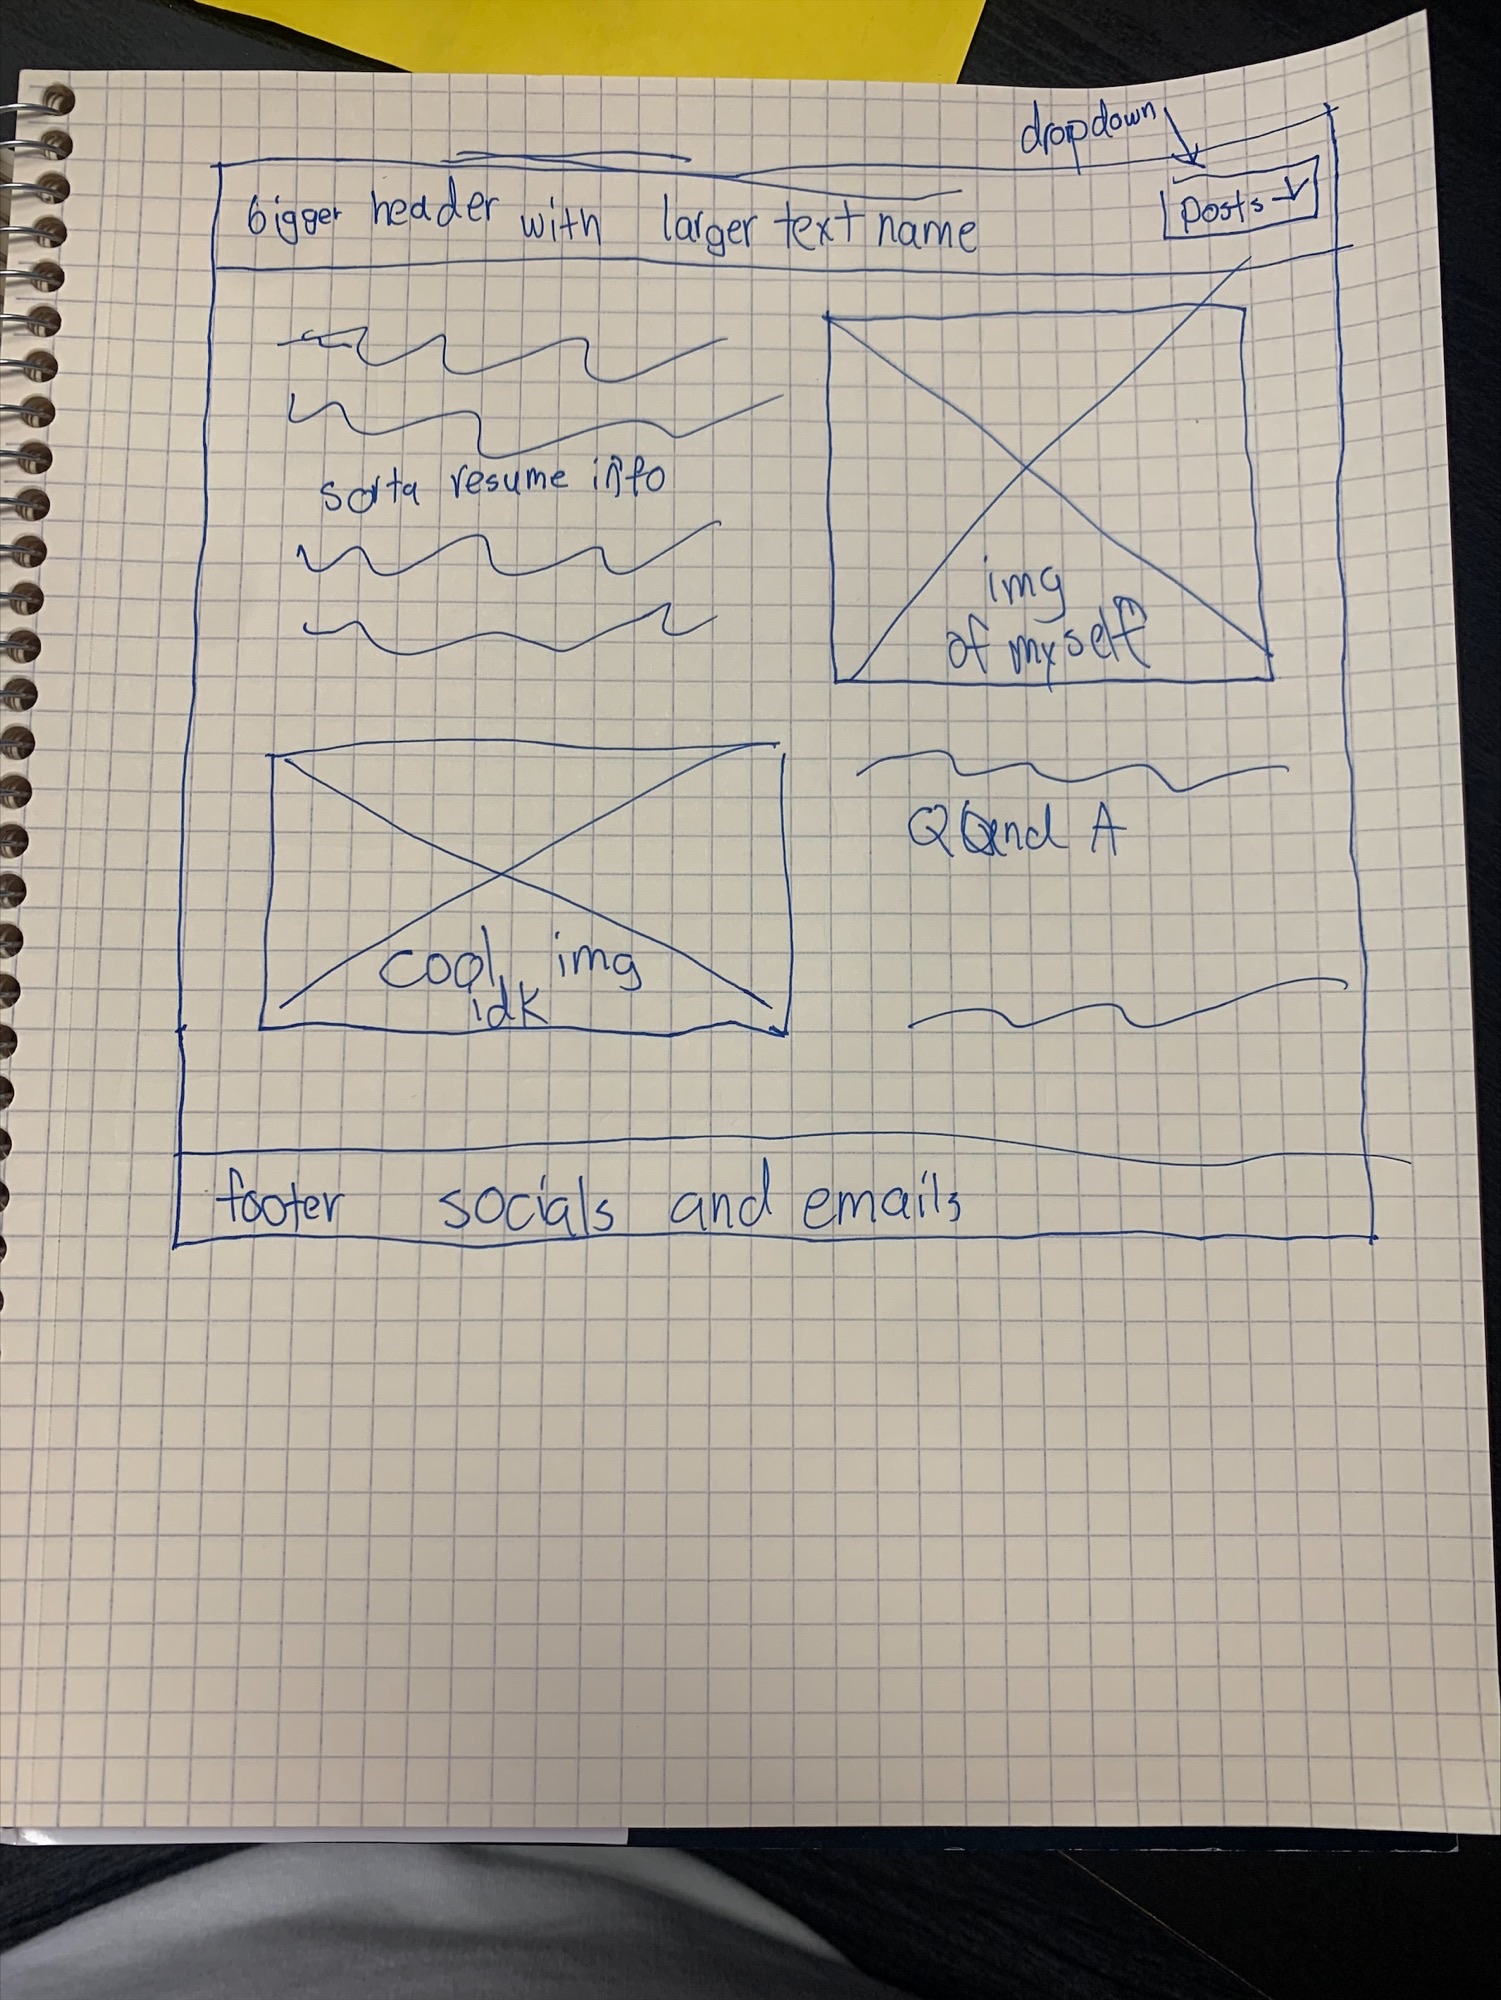 dropdown
bigger header with larger text name
posts
sorta resume info
img
of myself
Q and A
cool img
idk
footer socials and emails